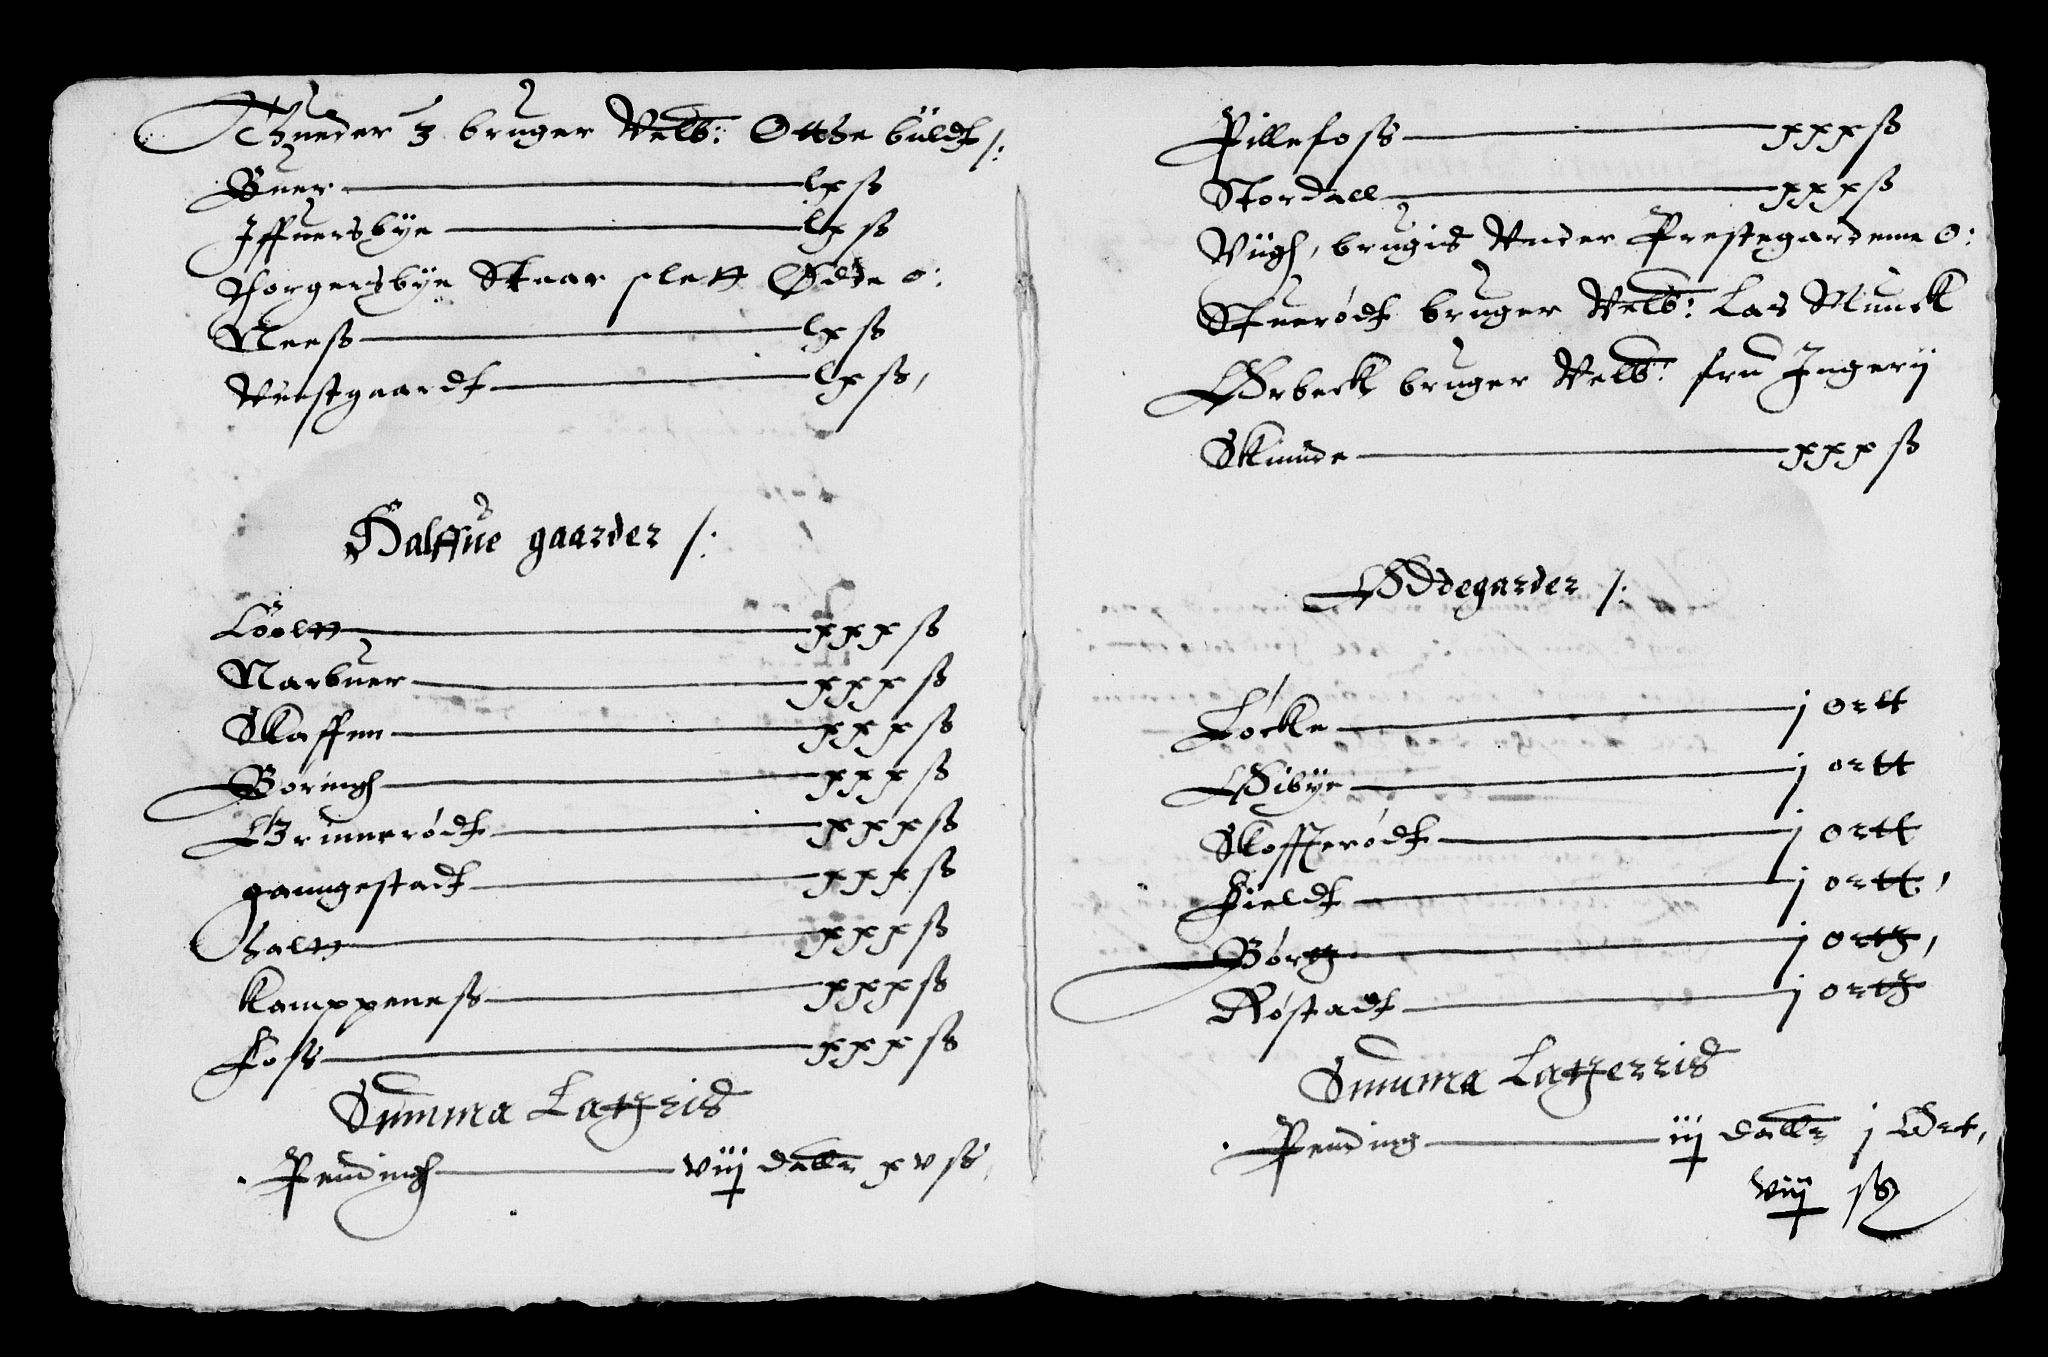 Thueder 3 bruger Velb: Otthe büldt /:
Buer lxß
Iffuersbye lxß
Thorgersbye Staar slett Ødde o:
Neeß lxß
Vestgaardt lxß,
Halffue gaarder /:
Løoltt xxxß
Narbuer xxxß
Skaffen xxxß
Boringh xxxß
Grinnerødt xxxß
gaungestadt xxxß
haltt xxxß
Kamppeneß xxxß
Foss xxxß
Summa Latheris
Pendingh viij dallr xvß
Pillefoss xxxß
Stordall xxxß
Viigh, brugis Vnder Prestegardenne o:
Stuerødt bruger Velb: Las Munck
Ørbeck bruger Velb: fru Ingerij
Skinnde xxxß
Ødegarder /:
Løcke j ortt
Øibye j ortt
Skofferødt j ortt
Fieldt j ortt,
Børtz j orth,
Røstadt j orth
Summa Latherris
Pending iij dallr j Ort,
viij ß